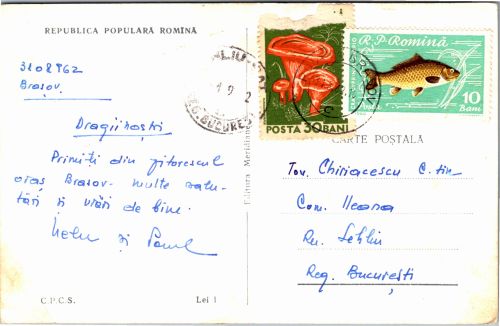 REPUBLICA POPULARĂ ROMÎNĂ
Brașov.
Dragii noștri
Primiți din pitorescul
oraș Brasov - multe salu-
tări și urări de bine.
Nelu și
C.P.C.S.
Lei 1
Editura Meridiane
POSTA 30 BANI
R.P. Romînă
10
Bani
CARTE POȘTALĂ
Tov. Chiriacescu C-tin
Com. Ileana
Rn. Lehliu
Reg. București